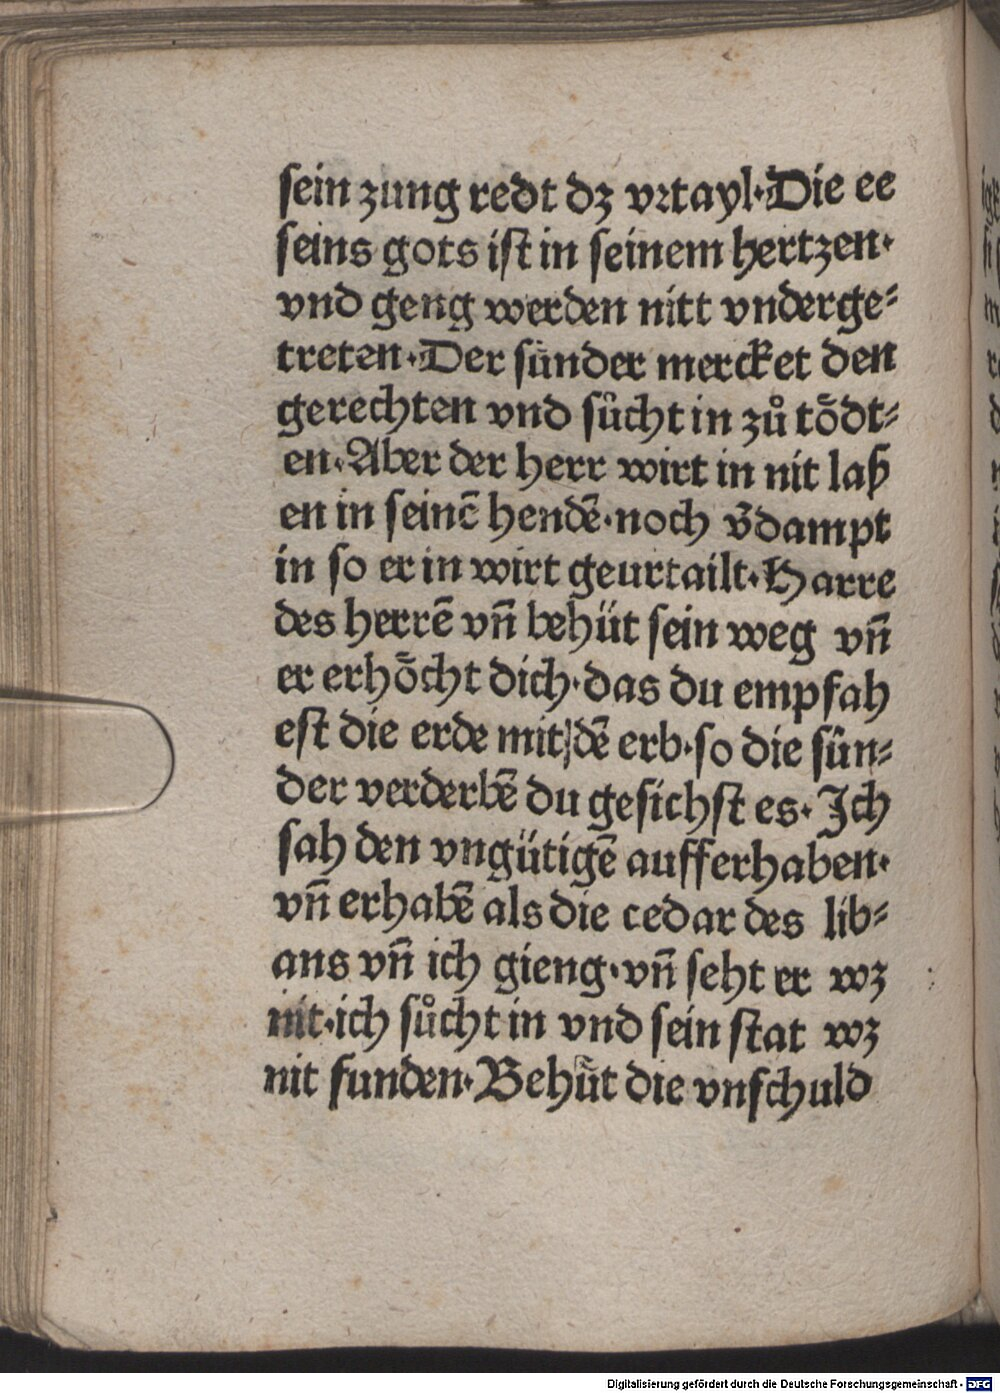 sein zung redt dz vrtayl·Die ee
seins gots ist in seinem hertzen·
vnd geng werden nitt vnderge⸗
treten·Der sünder mercket den
gerechten vnd sůcht in zů tȫdt⸗
en·Aber der herr wirt in nit laß
en in seinē hendē·noch v̄dampt
in so er in wirt geurtailt·Harre
des herrē vñ behüt sein weg vñ
er erhȫcht dich·das du empfah
est die erde mit dē erb·so die sün⸗
der verderbē du gesichst es·Ich
sah den vngütigē aufferhaben·
vñ erhabē als die cedar des lib⸗
ans vñ ich gieng·vñ seht er wz
nit·ich sůcht in vnd sein stat wz
nit funden·Behüt die vnschuld
Digitalisierung gefördert durch die Deutsche Forschungsgemeinschaft - DFG